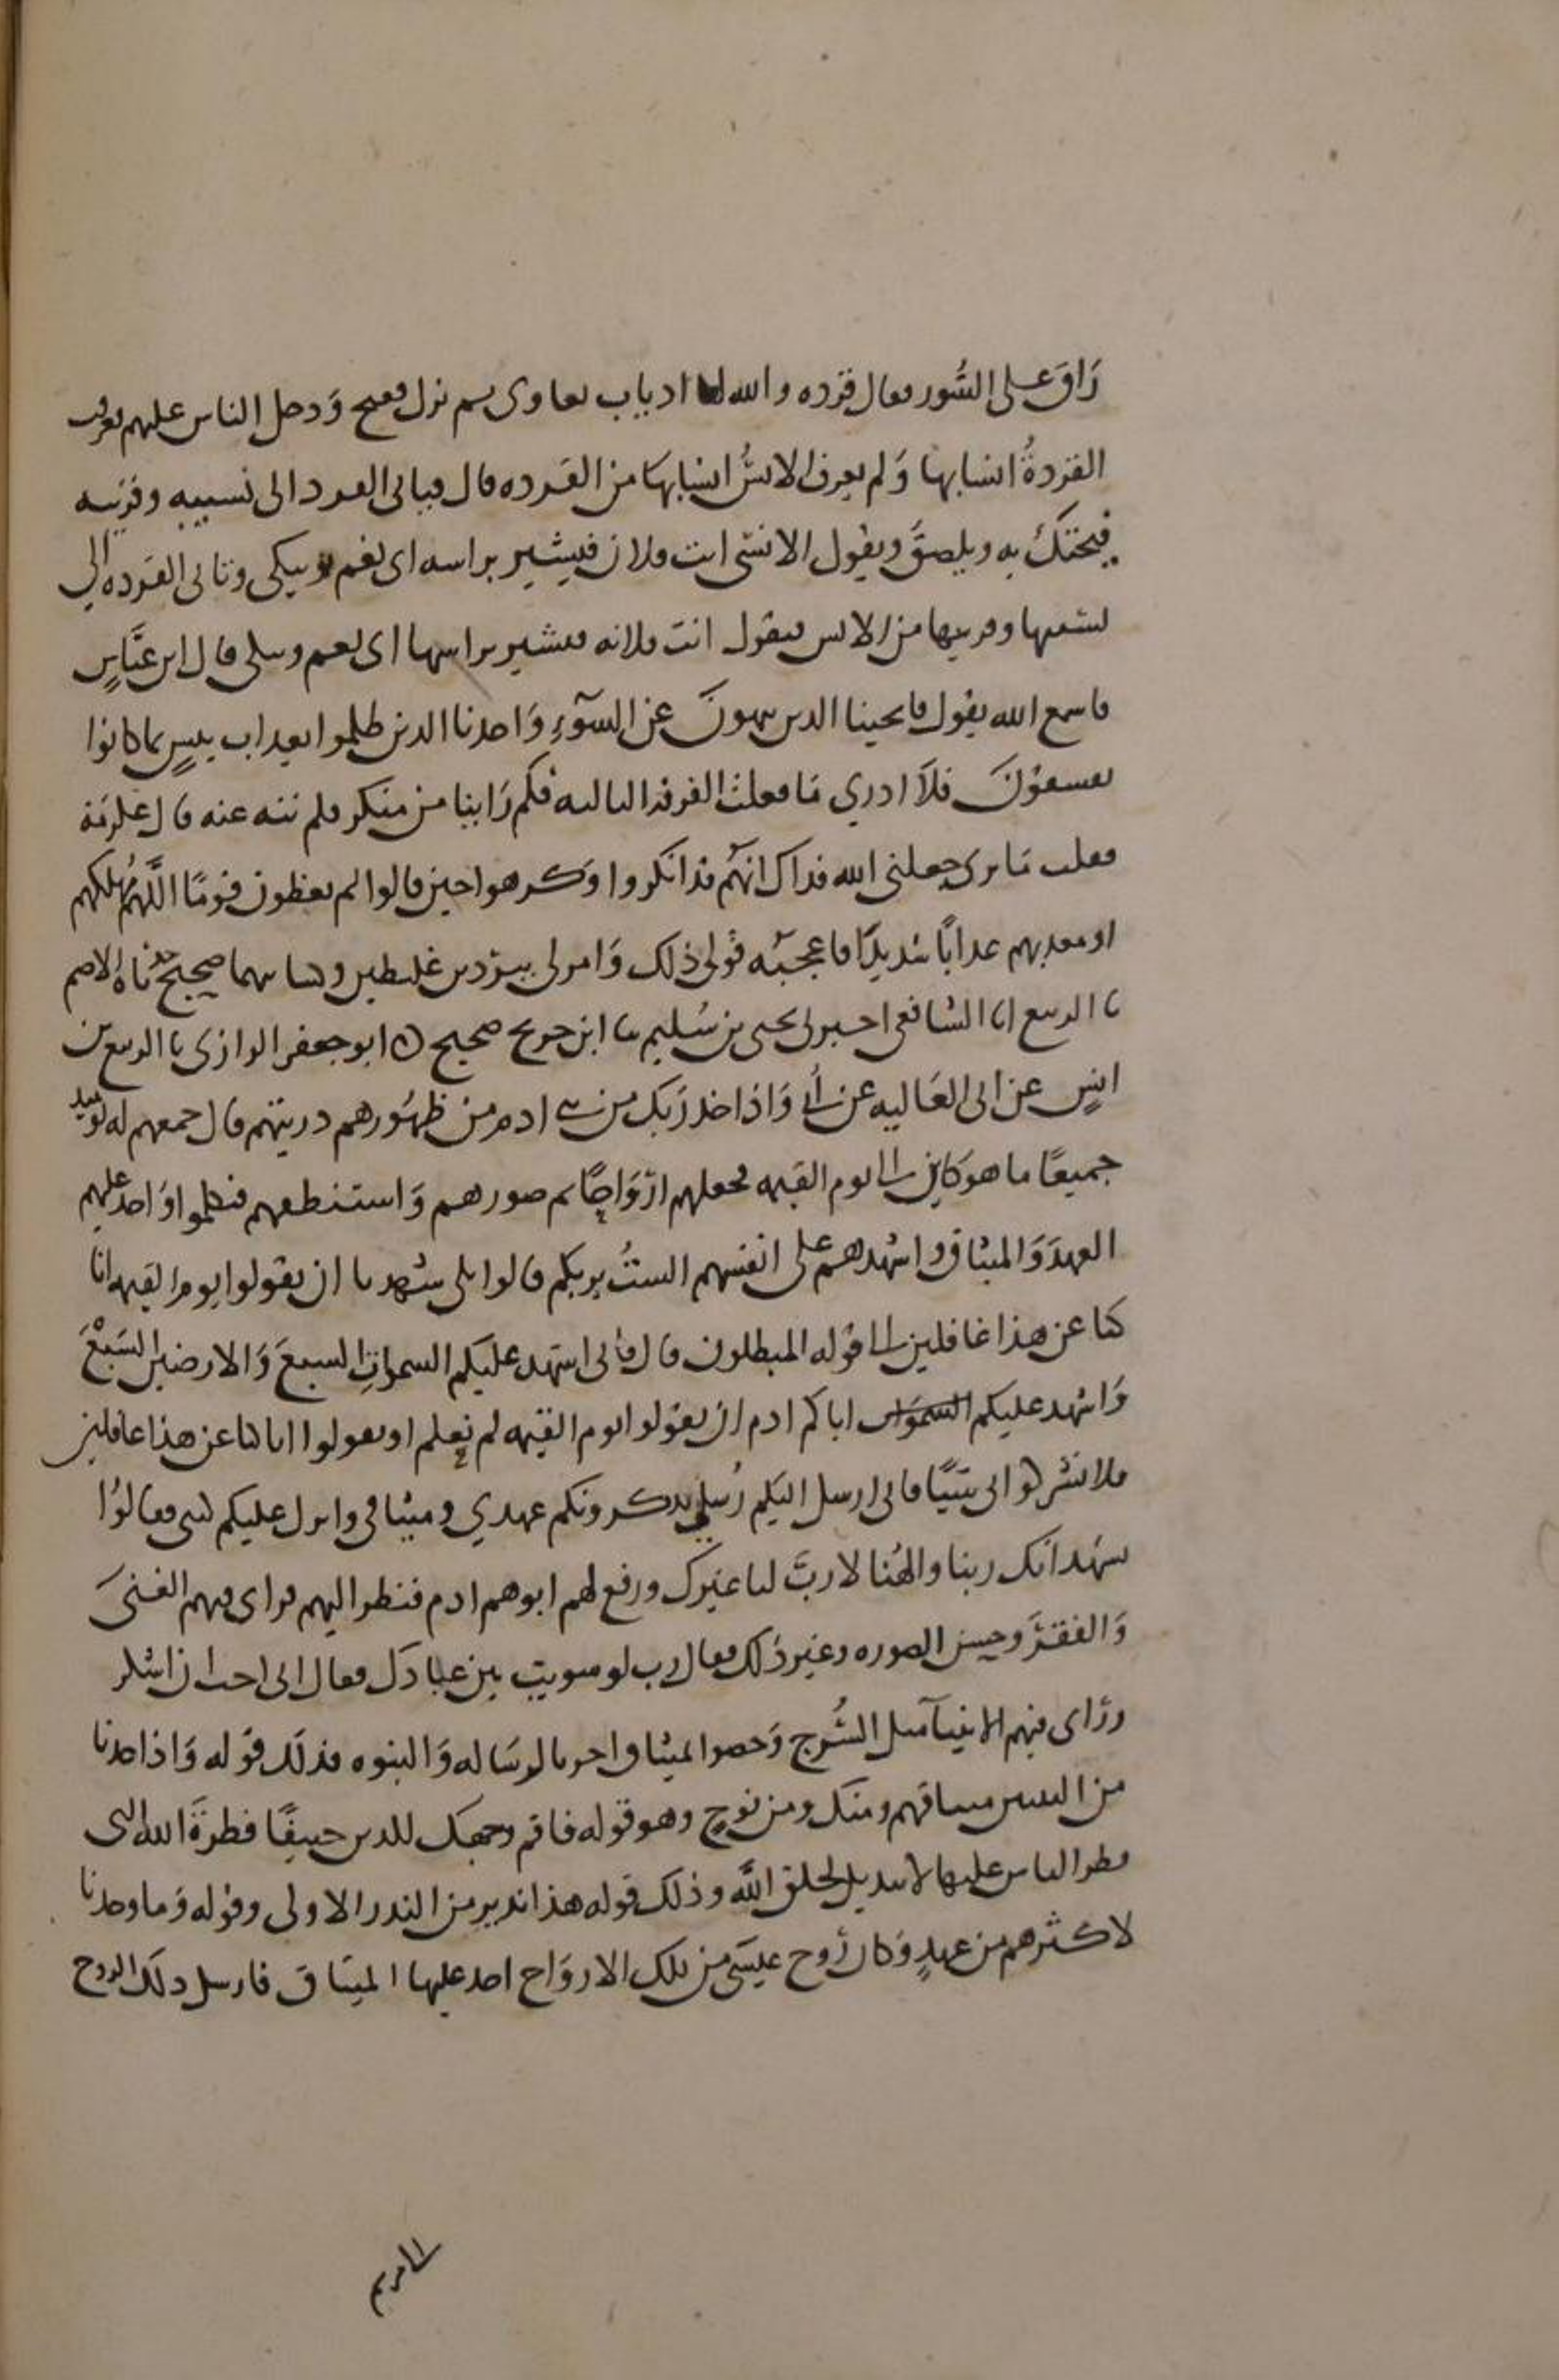 رَاقَ على السُّور فقال قرده والله لها ادباب تعاوى ثم نزل ففتح وَدخل الناس عليهم فعرفت
القردةُ انسابها وَلم يعرف الانسُ انسابها من القرده قال فياتى القرد الى نسيبه وقريبه
فيحتكُّ به ويلصقُ ويقول الانسى انت فلان فيشير براسه اى نعم ويبكى وتاتى القرده الى
نسيبها وقريبها من الانس فيقول انت فلانه فتشير براسها اى نعم وتبكى قال ابن عبَّاسٍ
فاسمع الله يقول فانجينا الذين ينهونَ عن السُّوٓءِ وَاخذنا الذين ظلموا بعذاب بئيسٍ بما كانوا
يفسقوْنَ فلَا ادري مَا فعلت الفرقه الثالثه فكم رَاينا من منكر فلم ننه عنه قال عكرمَة
فقلت مَا ترى جعلنى الله فداك انهَّم قد انكروا وَكرهوا حين قالوا لم تعظون قومًا اللَّهُ مُهلكهم
او معذبهم عذابًا شديدًا فاعجبَه قوْلى ذلك وَامر لى ببرْدين غليظين وكسانيهما صحيح حدثناه الاصم
نا الربيع انا الشافعى اخبرنى يحيى بن سُليم نا ابن جريج صحيح ه ابو جعفر الرازى نا الربيع بن
انسٍ عن ابى العَاليه عن اُبىٍّ وَاذ اخذ رَبك من بنى ادم من ظهُورهم ذريتهم قال جمعهم له يومئذ
جميعًا ما هو كاين الى يوم القيمه فجعلهم ازْوَاجًا ثم صورهم وَاستنطقهم فتكلموا وَاخذ عليهم
العهدَ وَالميثاق وَاشهدهم على انفسهم الستُ بربكم قالوا بلى شهدنا ان يقولوا يوم القيمه انا
كنا عن هذا غافلين الى قوْله المبطلون قال فانى اشهد عليكم السموات السبعَ وَالارضين السَبْعَ
وَاشهد عليكم السموَات اباكم ادم ان يقوْلوا يوم القيمه لم نعلم او يقولوا انا كنا عن هذا غافلين
فلا تشركوا بى شيئًا فانى ارسل اليكم رُسلى يذكرونكم عهدي وميثاقى وانزل عليكم كتبى فقالوُا
نشهد انك ربنا والهُنا لا ربَّ لنا غيرك ورفع لهم ابوهم ادم فنظر اليهم فراى فيهم الغنىَ
وَالفقيْرَ وحسن الصوره وغير ذلك فقال رب لو سويت بين عبادك فقال انى احب ان اشكر
ورَاى فيهم الانبيآ مثل السُّرج وَخصوا بميثاق اخر بالرسَاله وَالنبوه فذلك قوْله وَاذ اخذنا
من النبيين ميثاقهم ومنك ومن نوحٍ وهو قوله فاقم وجهك للدين حنيفًا فطرةَ الله التى
فطر الناس عليها لا تبديل لخلق اللَّه وذلك قوله هذا نذير من النذر الاولى وقوْله وَما وجدنا
لاكثرهم من عهدٍ وَكان رُوح عيسَى من تلك الارْوَاح اخذ عليها الميثاق فارسل ذلك الروح
الى مريم